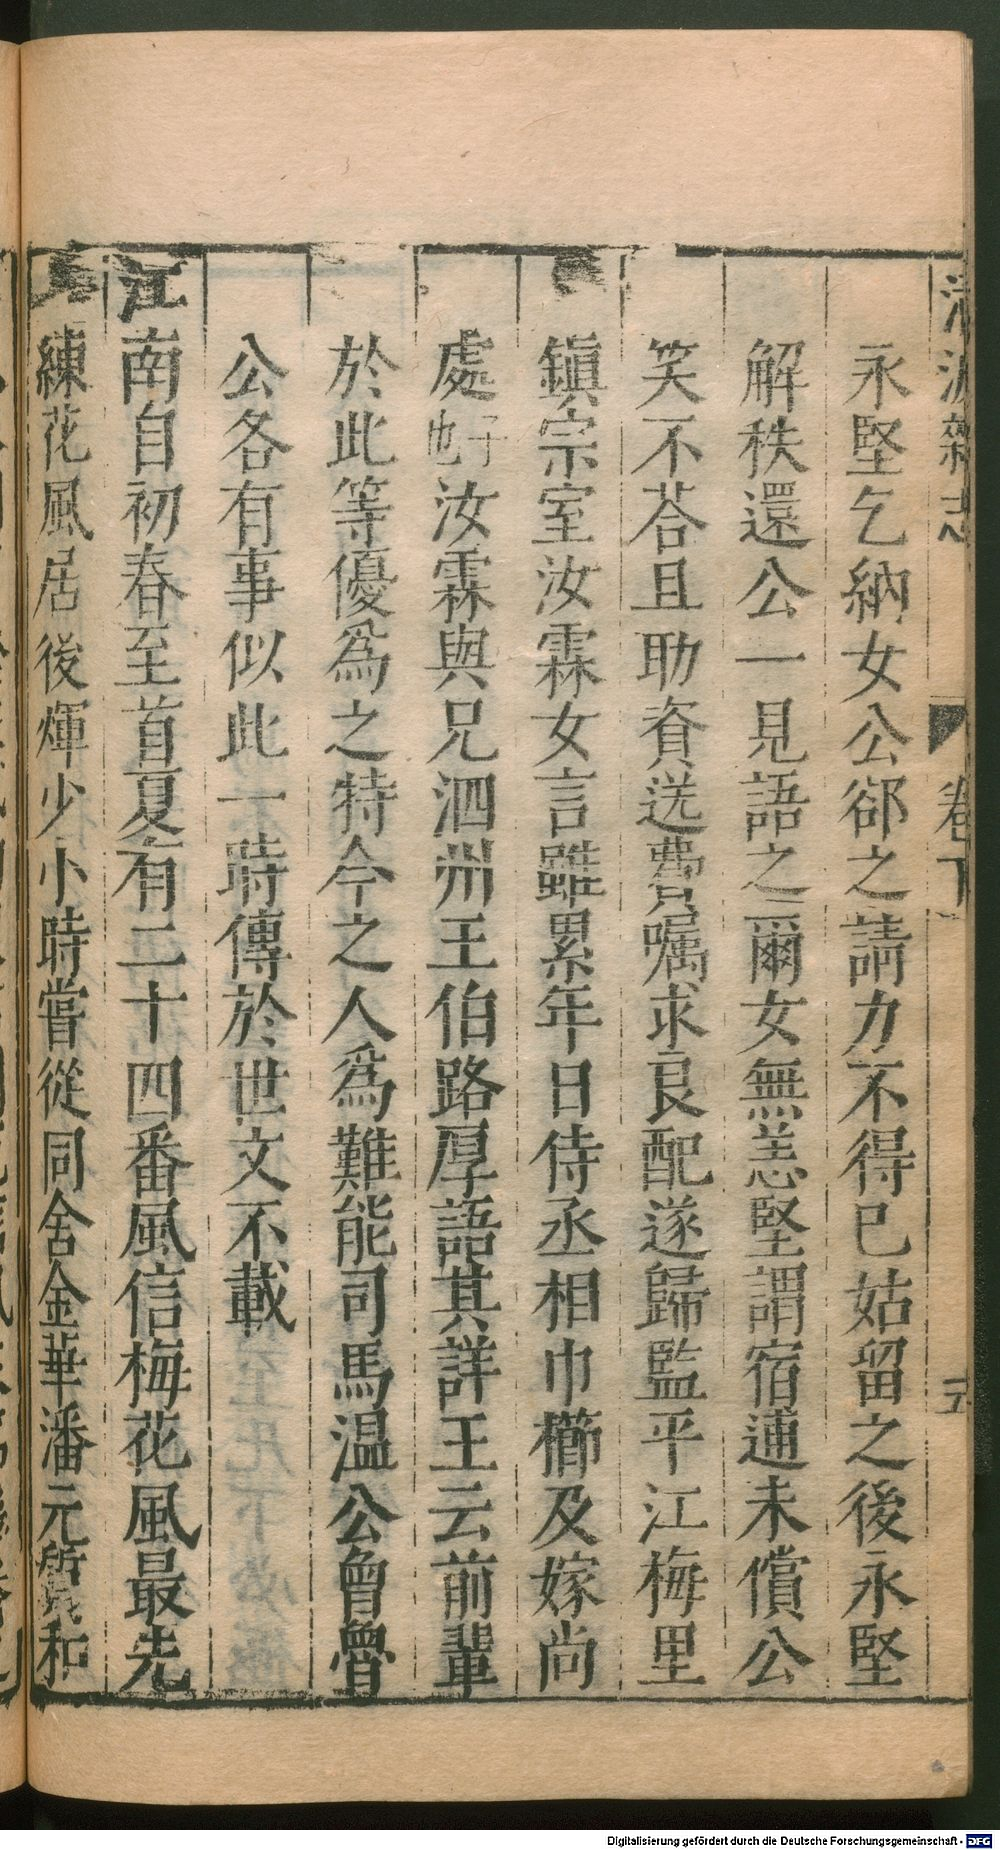 清波雜志 卷下 五
永堅乞納女公郤之請力不得已姑留之後永堅
解秩還公一見語之爾女無恙堅謂宿逋未償公
笑不荅且助資送費囑求良配遂歸監平江梅里
鎮宗室汝霖女言雖累年日侍丞相巾櫛及嫁尚
處子也汝霖與兄泗州王伯路厚語其詳王云前輩
於此等優爲之特今之人爲難能司馬温公曾魯
公各有事似此一時傳於世文不載
江南自初春至首夏有二十四番風信梅花風最先
練花風居後煇少小時嘗從同舍金華潘元質和
Digitalisierung gefördert durch die Deutsche Forschungsgemeinschaft - DFG